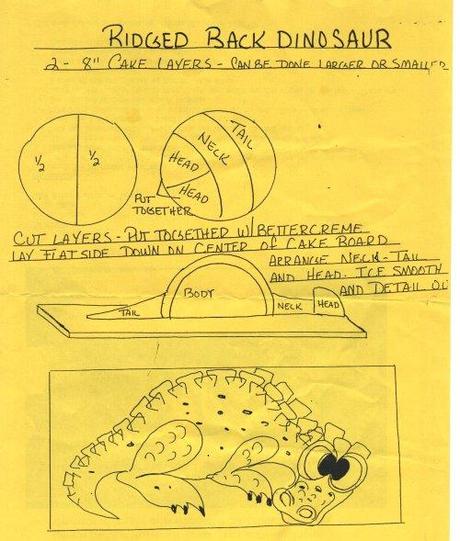 RIDGED BACK DINOSAUR
2 - 8" CAKE LAYERS - CAN BE DONE LARGER OR SMALLER
1/2
1/2
TAIL
NECK
HEAD
HEAD
PUT
TOGETHER
CUT LAYERS - PUT TOGETHER W/BETTERCREME
LAY FLAT SIDE DOWN ON CENTER OF CAKE BOARD
ARRANGE NECK - TAIL
AND HEAD. ICE SMOOTH
AND DETAIL
BODY
TAIL
NECK
HEAD